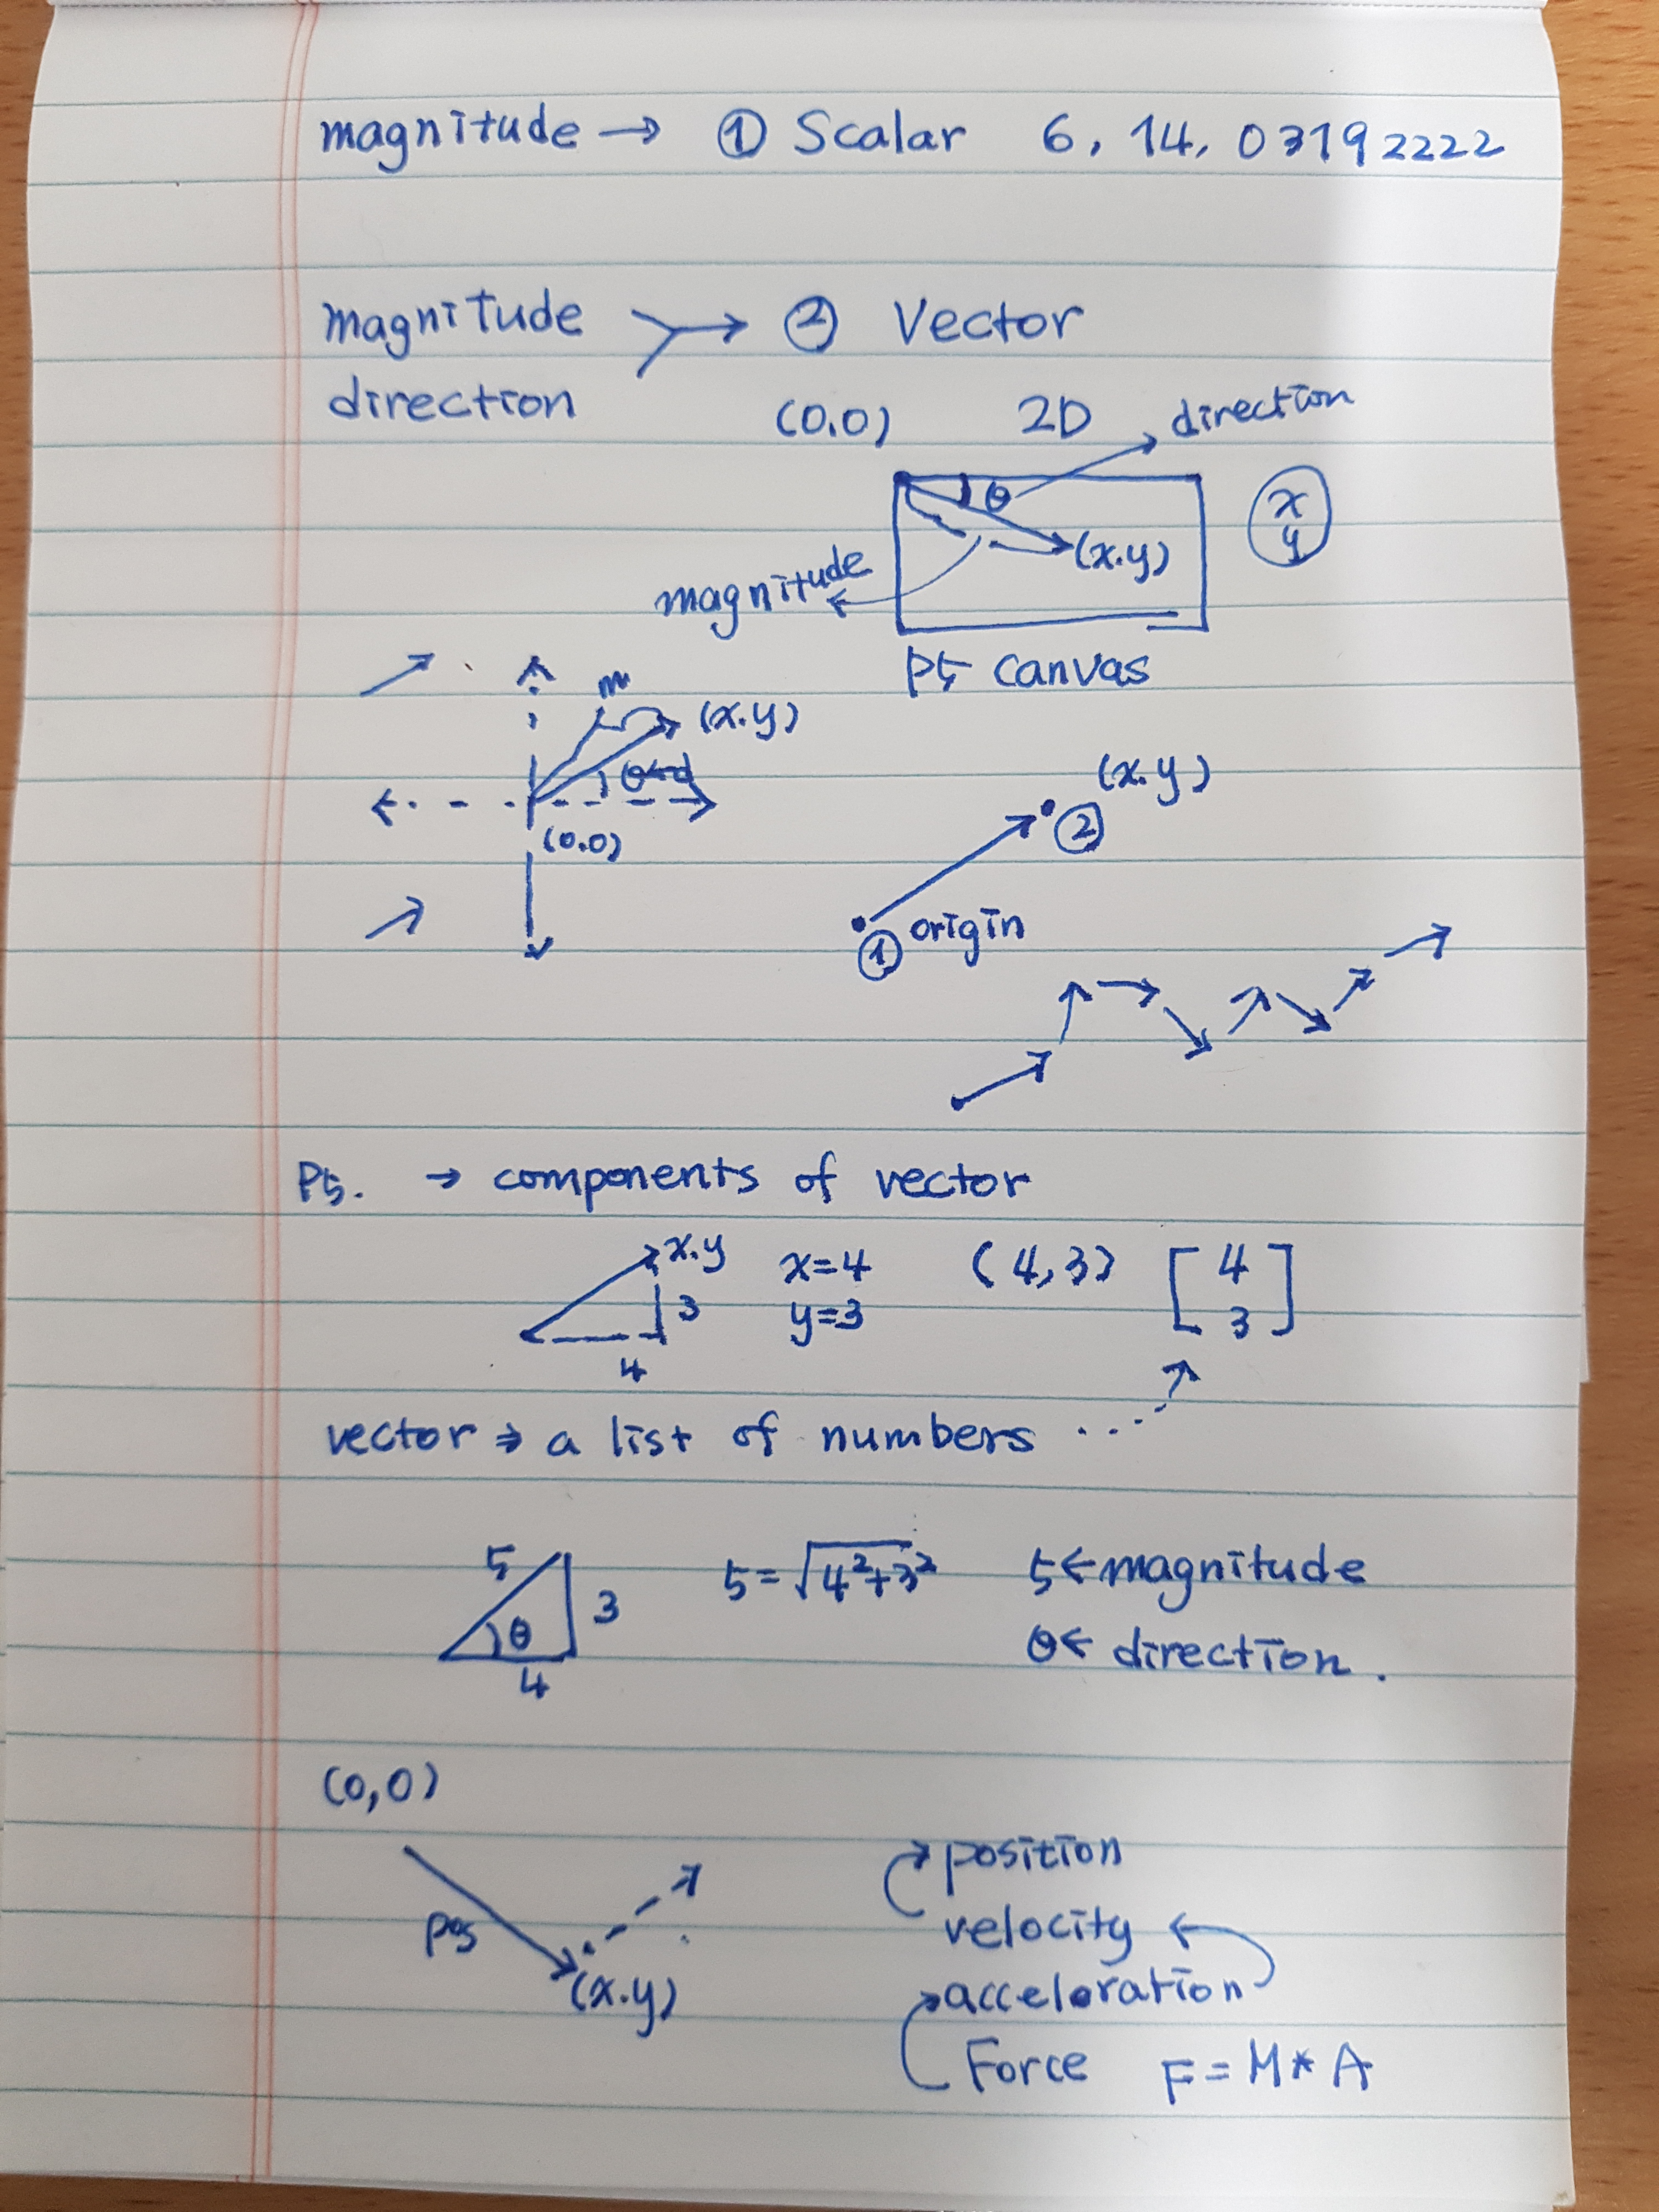 magnitude → ① Scalar 6, 14, 03192222
magnitude → ② Vector
direction
(0,0) 2D direction
θ
x
y
(x.y)
magnitude
P5 Canvas
m
(x.y)
(0,0)
(x.y)
②
① origin
P5. → components of vector
x.y x=4 (4,3) [4
3 y=3 3]
4
vector ⇒ a list of numbers ....
5 5=√4²+3² 5←magnitude
θ 3 θ← direction.
4
(0,0)
position
P5 velocity
(x.y) acceleration
Force F=M*A